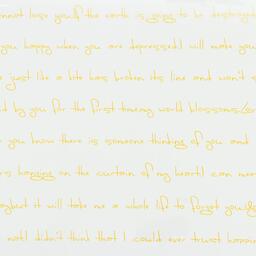 cannot lose you,if the earth is going to be destroyed
you happy when you are depressed.I will make you
just like a kite has broken its line and won't
by you for the first time.my world blossoms,
you know there is someone thinking of you and
hanging on the curtain of my heart.I can
but it will take me a whole life to forget you.
not.I didn't think that I could ever trust happin